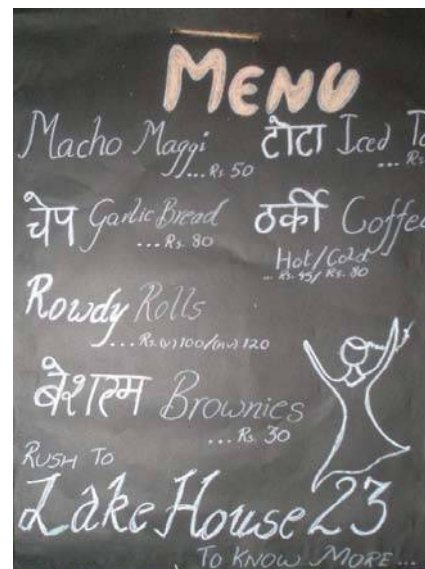 MENU
Macho Maggi
...Rs. 50
टोटा Iced
... Rs.
चेप Garlic Bread
... Rs. 80
ठर्की Coffee
Hot/Cold
... Rs. 45/Rs. 80
Rowdy Rolls
....Rs.(v)100/(nv)120
बेशरम Brownies
...Rs. 30
RUSH TO
Lake House 23
TO KNOW MORE...